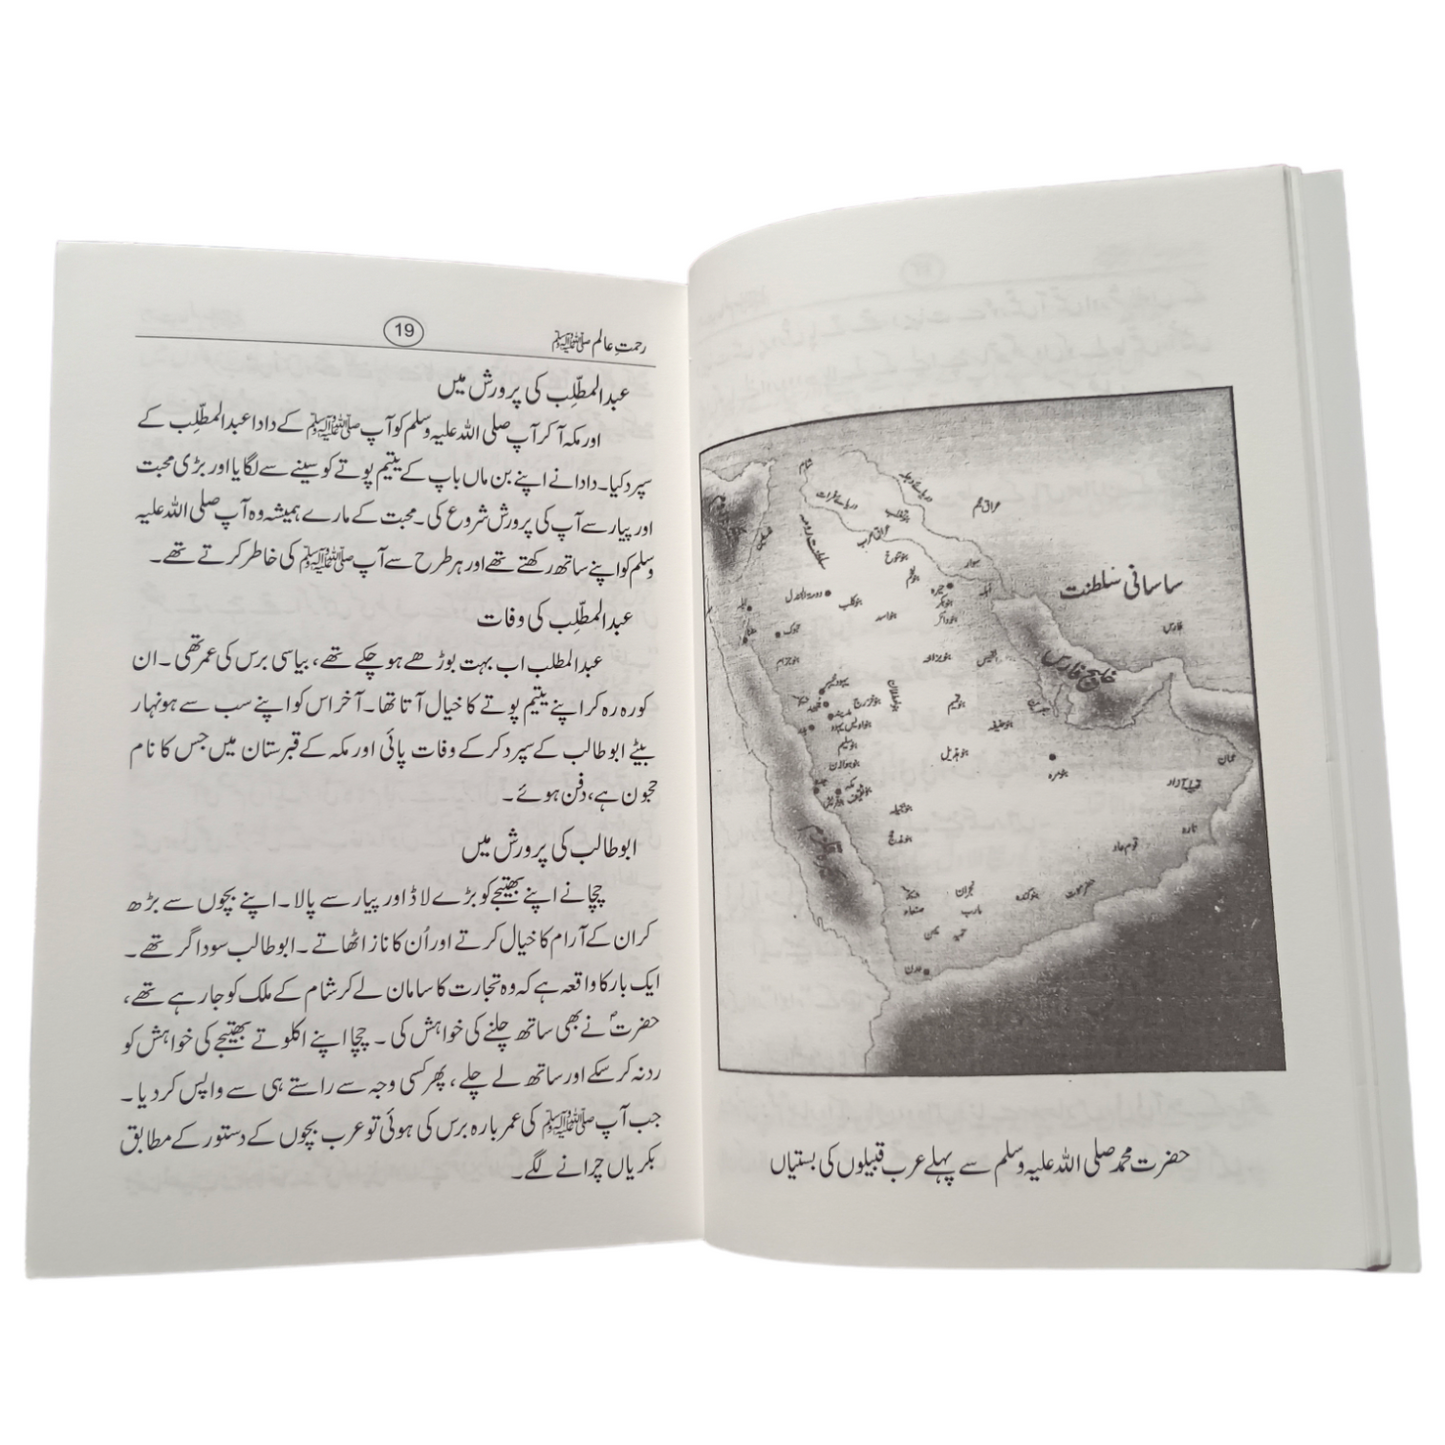 رحمتِ عالم ﷺ
19
عبدالمطلّب کی پرورش میں
اور مکہ آ کر آپ صلی اللہ علیہ وسلم کو آپ ﷺ کے دادا عبدالمطلّب کے
سپرد کیا۔ دادا نے اپنے بن ماں باپ کے یتیم پوتے کو سینے سے لگایا اور بڑی محبت
اور پیار سے آپ کی پرورش شروع کی۔ محبت کے مارے ہمیشہ وہ آپ صلی اللہ علیہ
وسلم کو اپنے ساتھ رکھتے تھے اور ہر طرح سے آپ ﷺ کی خاطر کرتے تھے۔
عبدالمطلّب کی وفات
عبدالمطلب اب بہت بوڑھے ہو چکے تھے، بیاسی برس کی عمر تھی۔ ان
کو رہ رہ کر اپنے یتیم پوتے کا خیال آتا تھا۔ آخر اس کو اپنے سب سے ہونہار
بیٹے ابوطالب کے سپرد کر کے وفات پائی اور مکہ کے قبرستان میں جس کا نام
حجون ہے، دفن ہوئے۔
ابوطالب کی پرورش میں
چچا نے اپنے بھتیجے کو بڑے لاڈ اور پیار سے پالا۔ اپنے بچوں سے بڑھ
کر ان کے آرام کا خیال کرتے اور اُن کا ناز اٹھاتے۔ ابوطالب سوداگر تھے۔
ایک بار کا واقعہ ہے کہ وہ تجارت کا سامان لے کر شام کے ملک کو جا رہے تھے،
حضرتؐ نے بھی ساتھ چلنے کی خواہش کی۔ چچا اپنے اکلوتے بھتیجے کی خواہش کو
رد نہ کر سکے اور ساتھ لے چلے، پھر کسی وجہ سے راستے ہی سے واپس کر دیا۔
جب آپ ﷺ کی عمر بارہ برس کی ہوئی تو عرب بچوں کے دستور کے مطابق
بکریاں چرانے لگے۔
شام
دریائے فرات
عراق عجم
عراق عرب
سلطنت روم
ساسانی سلطنت
دومۃ الجندل
بنوکلب
بنو اسد
حیرہ
ابلہ
تبوک
فارس
خلیج فارس
بنوتمیم
بنوحنیفہ
بنوسلیم
بنوہوازن
بنوہذیل
مکہ
عمان
قوم عاد
حضرموت
بنوکندہ
نجران
مارب
صنعاء
یمن
عدن
حضرت محمد صلی اللہ علیہ وسلم سے پہلے عرب قبیلوں کی بستیاں